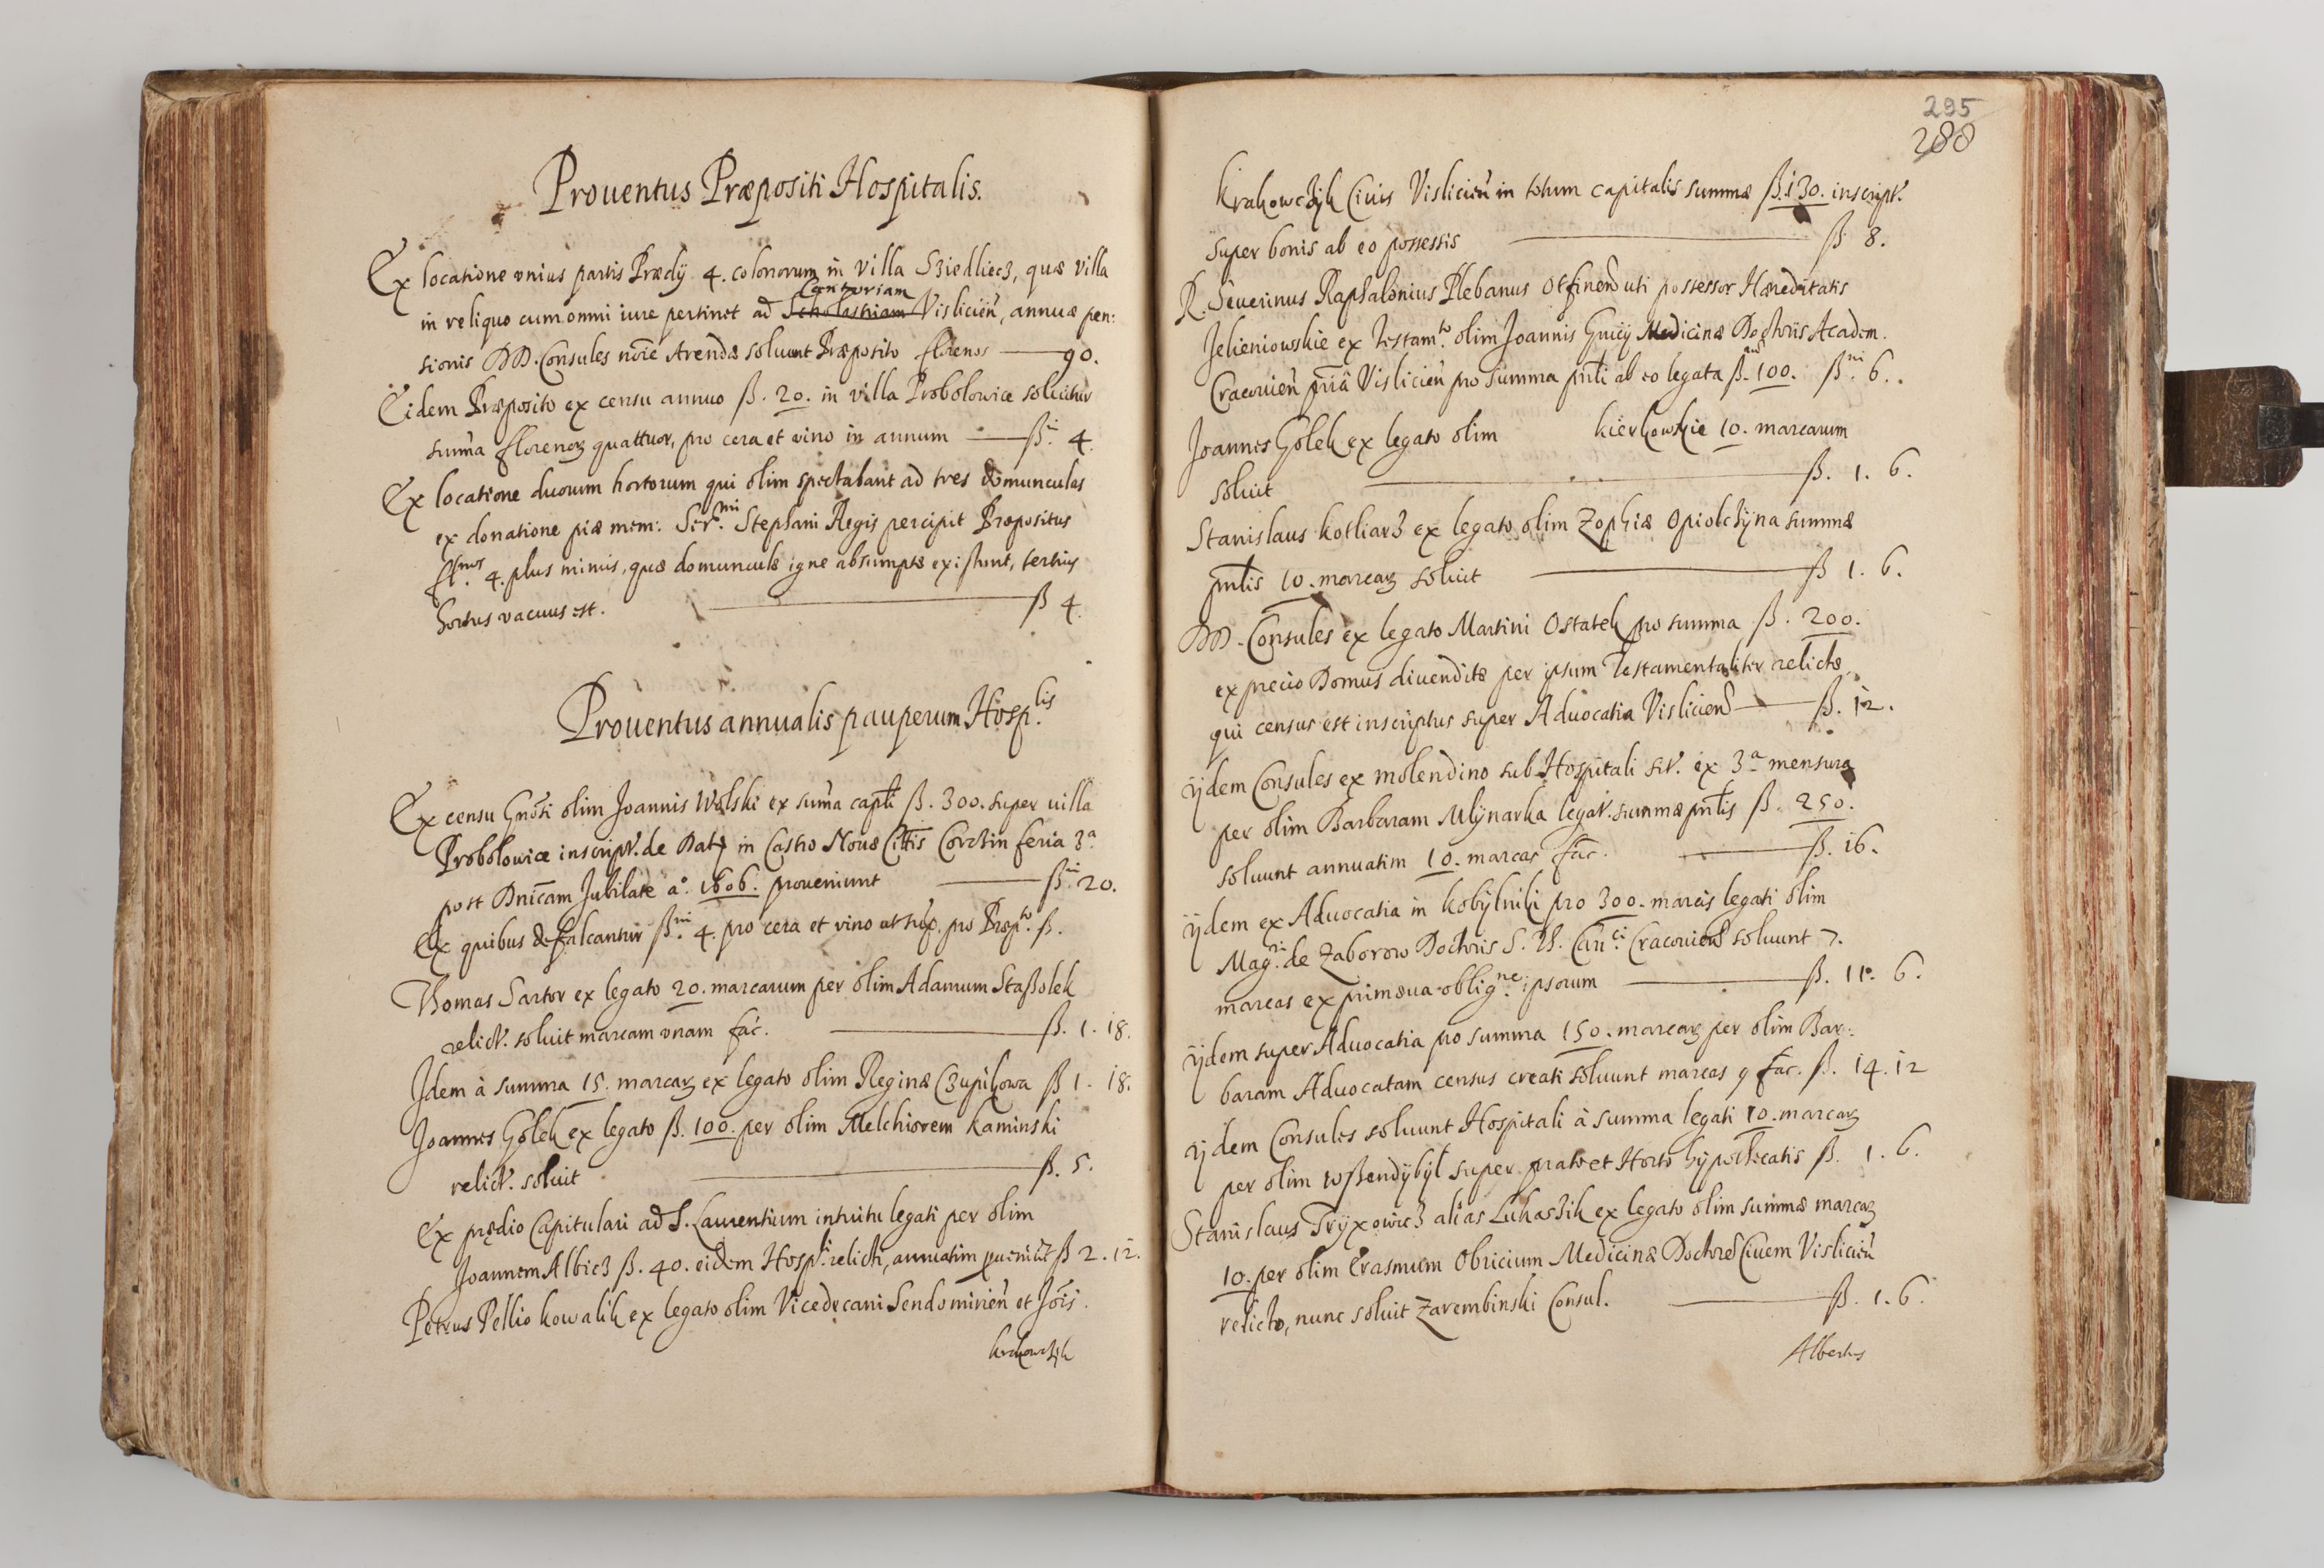 Prouentus Præpositi Hospitalis.
Ex locatione vnius partis Prædij 4. colonorum in villa Sziedliecz, quæ villa
Cantoriam
in reliquo cum omni iure pertinet ad Scholastriam Vislicieñ, annuæ pen:
sionis DD. Consules nõie Arendæ soluunt Præposito florenos 90.
Eidem Præposito ex censu annuo ß. 20. in villa Probolowice soluitur
sum̃a florenoꝝ quattuor, pro cera et vino in annum ß. 4.
Ex locatione duorum hortorum qui olim spectabant ad tres domunculas
ex donatione piæ mem: Ser.mi Stephani Regis percipit Præpositus
fl.nos 4. plus minus, quæ domunculæ igne absumptæ existunt, tertius
hortus vacuus est. ß 4.
Prouentus annualis pauperum Hosp.lis
Ex censu Gnõsi olim Joannis Wolski ex sum̃a capt̃li ß. 300. super uilla
Probolowice inscript. de Datꝫ in Castro Nouæ Cittis Corczin feria 3.a
post Dnĩcam Jubilate a.o 1606. proueniunt ß.ni 20.
Ex quibus defalcantur ß.ni 4. pro cera et vino ut sup. pro Præp.to ß.
Thomas Sartor ex legato 20. marcarum per olim Adamum Staßolek
relict. soluit marcam vnam fac. ß. 1. 18.
Idem à summa 15. marcaꝝ ex legato olim Reginæ Czupikowa ß 1. 18.
Joannes Golek ex legato ß. 100. per olim Melchiorem Kaminski
relict. soluit ß. 5.
Ex prędio Capitulari ad S. Laurentium intuitu legati per olim
Joannem Albicz ß. 40. eidem Hosp.li relicti, annuatim ꝓueniũt ß 2. 12.
Petrus Pellio kowalik ex legato olim Vicedecani Sendomirieñ et Jõis
krakowczyk
295
288
Krakowczyk Ciuis Visliciẽn in totum capitalis summæ ß. 130. inscript.
super bonis ab eo possessis ß 8.
R. Seuerinus Raphalonius Plebanus Otfineñ uti possessor Hæreditatis
Jelieniowskie ex Testam.to olim Joannis Gruiij Medicinæ Doctoris Academ.
Cracouieñ Visliciẽn pro summa pñti ab eo legata ß. 100. ß.ni 6.
Joannes Golek ex legato olim kierkowskie 10. marcarum
soluit ß. 1. 6.
Stanislaus kotliarz ex legato olim Zophiæ Opiolczÿna summæ
pñtis 10. marcaꝝ soluit ß 1. 6.
DD. Consules ex legato Martini Ostatek pro summa ß. 200.
ex precio Domus diuenditæ per ipsum Testamentaliter relictæ,
qui census est inscriptus super Aduocatia Vislicieñ ß. 12.
ijdem Consules ex molendino sub Hospitali sit. ex 3.a mensura
per olim Barbaram Mlÿnarka legat. summæ pñtis ß. 250.
soluunt annuatim 10. marcas fac. ß. 16.
ijdem ex Aduocatia in kobÿlniki pro 300. marcis legati olim
Mag.ri de Zaborow Doctoris S. Th. Can.ci Cracouieñ soluunt 7.
marcas ex primæua oblig.ne ipsorum ß. 11. 6.
ijdem super Aduocatia pro summa 150. marcaꝝ per olim Bar:
baram Aduocatam census creati soluunt marcas 9 fac. ß. 14. 12
ijdem Consules soluunt Hospitali à summa legati 10. marcaꝝ
per olim wßendÿbÿl super prato et Horto hÿpothecatis ß. 1. 6.
Stanislaus Trÿxowicz alias Lukaszik ex legato olim summæ marcaꝝ
10. per olim Erasmum Obricium Medicinæ Doctorẽ Ciuem Visliciẽn
relicto, nunc soluit Zarembinski Consul. ß. 1. 6.
Albertus